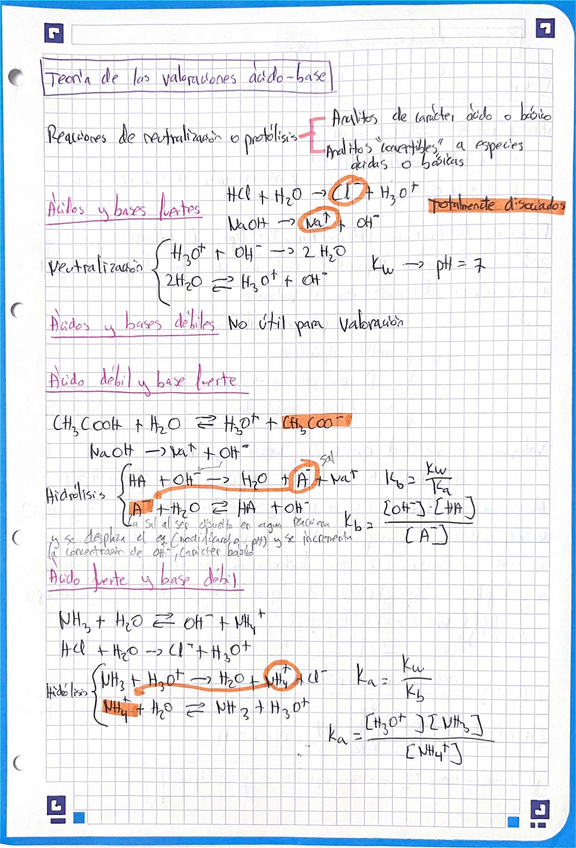 Teoría de las valoraciones ácido-base
Reacciones de neutralización o protólisis
Analitos de carácter ácido o básico
Analitos "convertibles" a especies
ácidas o básicas
Ácidos y bases fuertes
HCl + H₂O → Cl⁻ + H₃O⁺
NaOH → Na⁺ + OH⁻
Totalmente disociados
Neutralización
H₃O⁺ + OH⁻ → 2 H₂O
2H₂O ⇌ H₃O⁺ + OH⁻
Kw → pH = 7
Ácidos y bases débiles No útil para valoración
Ácido débil y base fuerte
CH₃COOH + H₂O ⇌ H₃O⁺ + CH₃COO⁻
NaOH → Na⁺ + OH⁻
Hidrólisis
HA + OH⁻ → H₂O + A⁻ + Na⁺
sal
A⁻ + H₂O ⇌ HA + OH⁻
Kb = Kw / Ka
Kb = [OH⁻]·[HA] / [A⁻]
La sal al ser disuelto en agua reacciona
y se desplaza el eq (modificando pH) y se incrementa
la concentración de OH⁻, carácter básico
Ácido fuerte y base débil
NH₃ + H₂O ⇌ OH⁻ + NH₄⁺
HCl + H₂O → Cl⁻ + H₃O⁺
Hidrólisis
NH₃ + H₃O⁺ → H₂O + NH₄⁺ + Cl⁻
NH₄⁺ + H₂O ⇌ NH₃ + H₃O⁺
Ka = Kw / Kb
Ka = [H₃O⁺][NH₃] / [NH₄⁺]